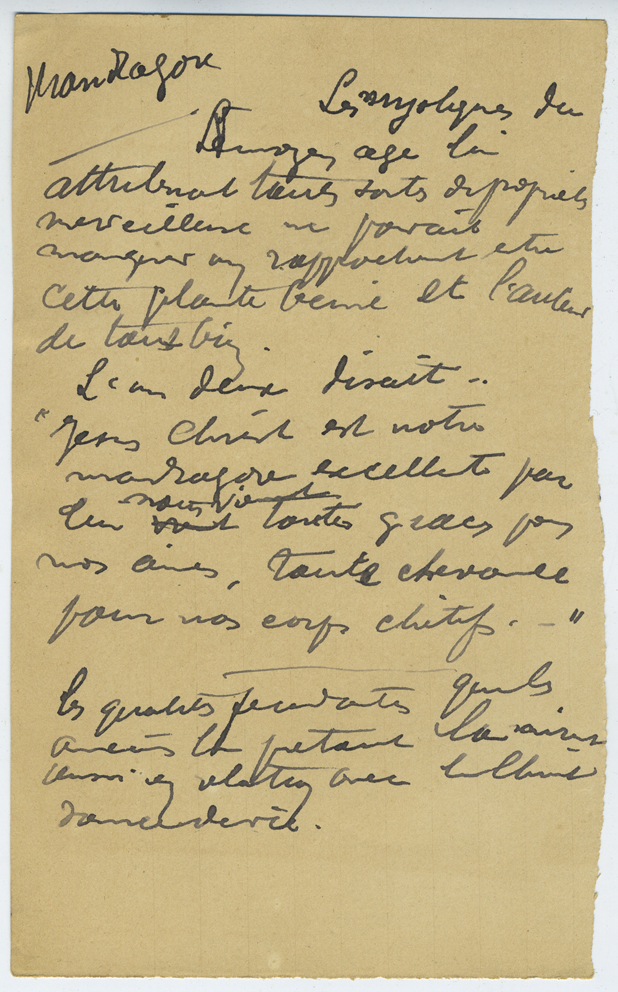 Mandragore
Les mystiques du
Moyen age lui
attribuant toutes sortes de propriétés
merveilleuse ne pouvait
manquer un rapprochant entre
cette plante bénie et l'auteur
de tous bien.
L'un deux disait ..
"Jesus Christ est notre
mandragore excellente par
lui nous vient toutes graces pour
nos âmes, toute chevance
pour nos corps chétifs. — "
les qualités qu'ils
la
aussi en relation avec